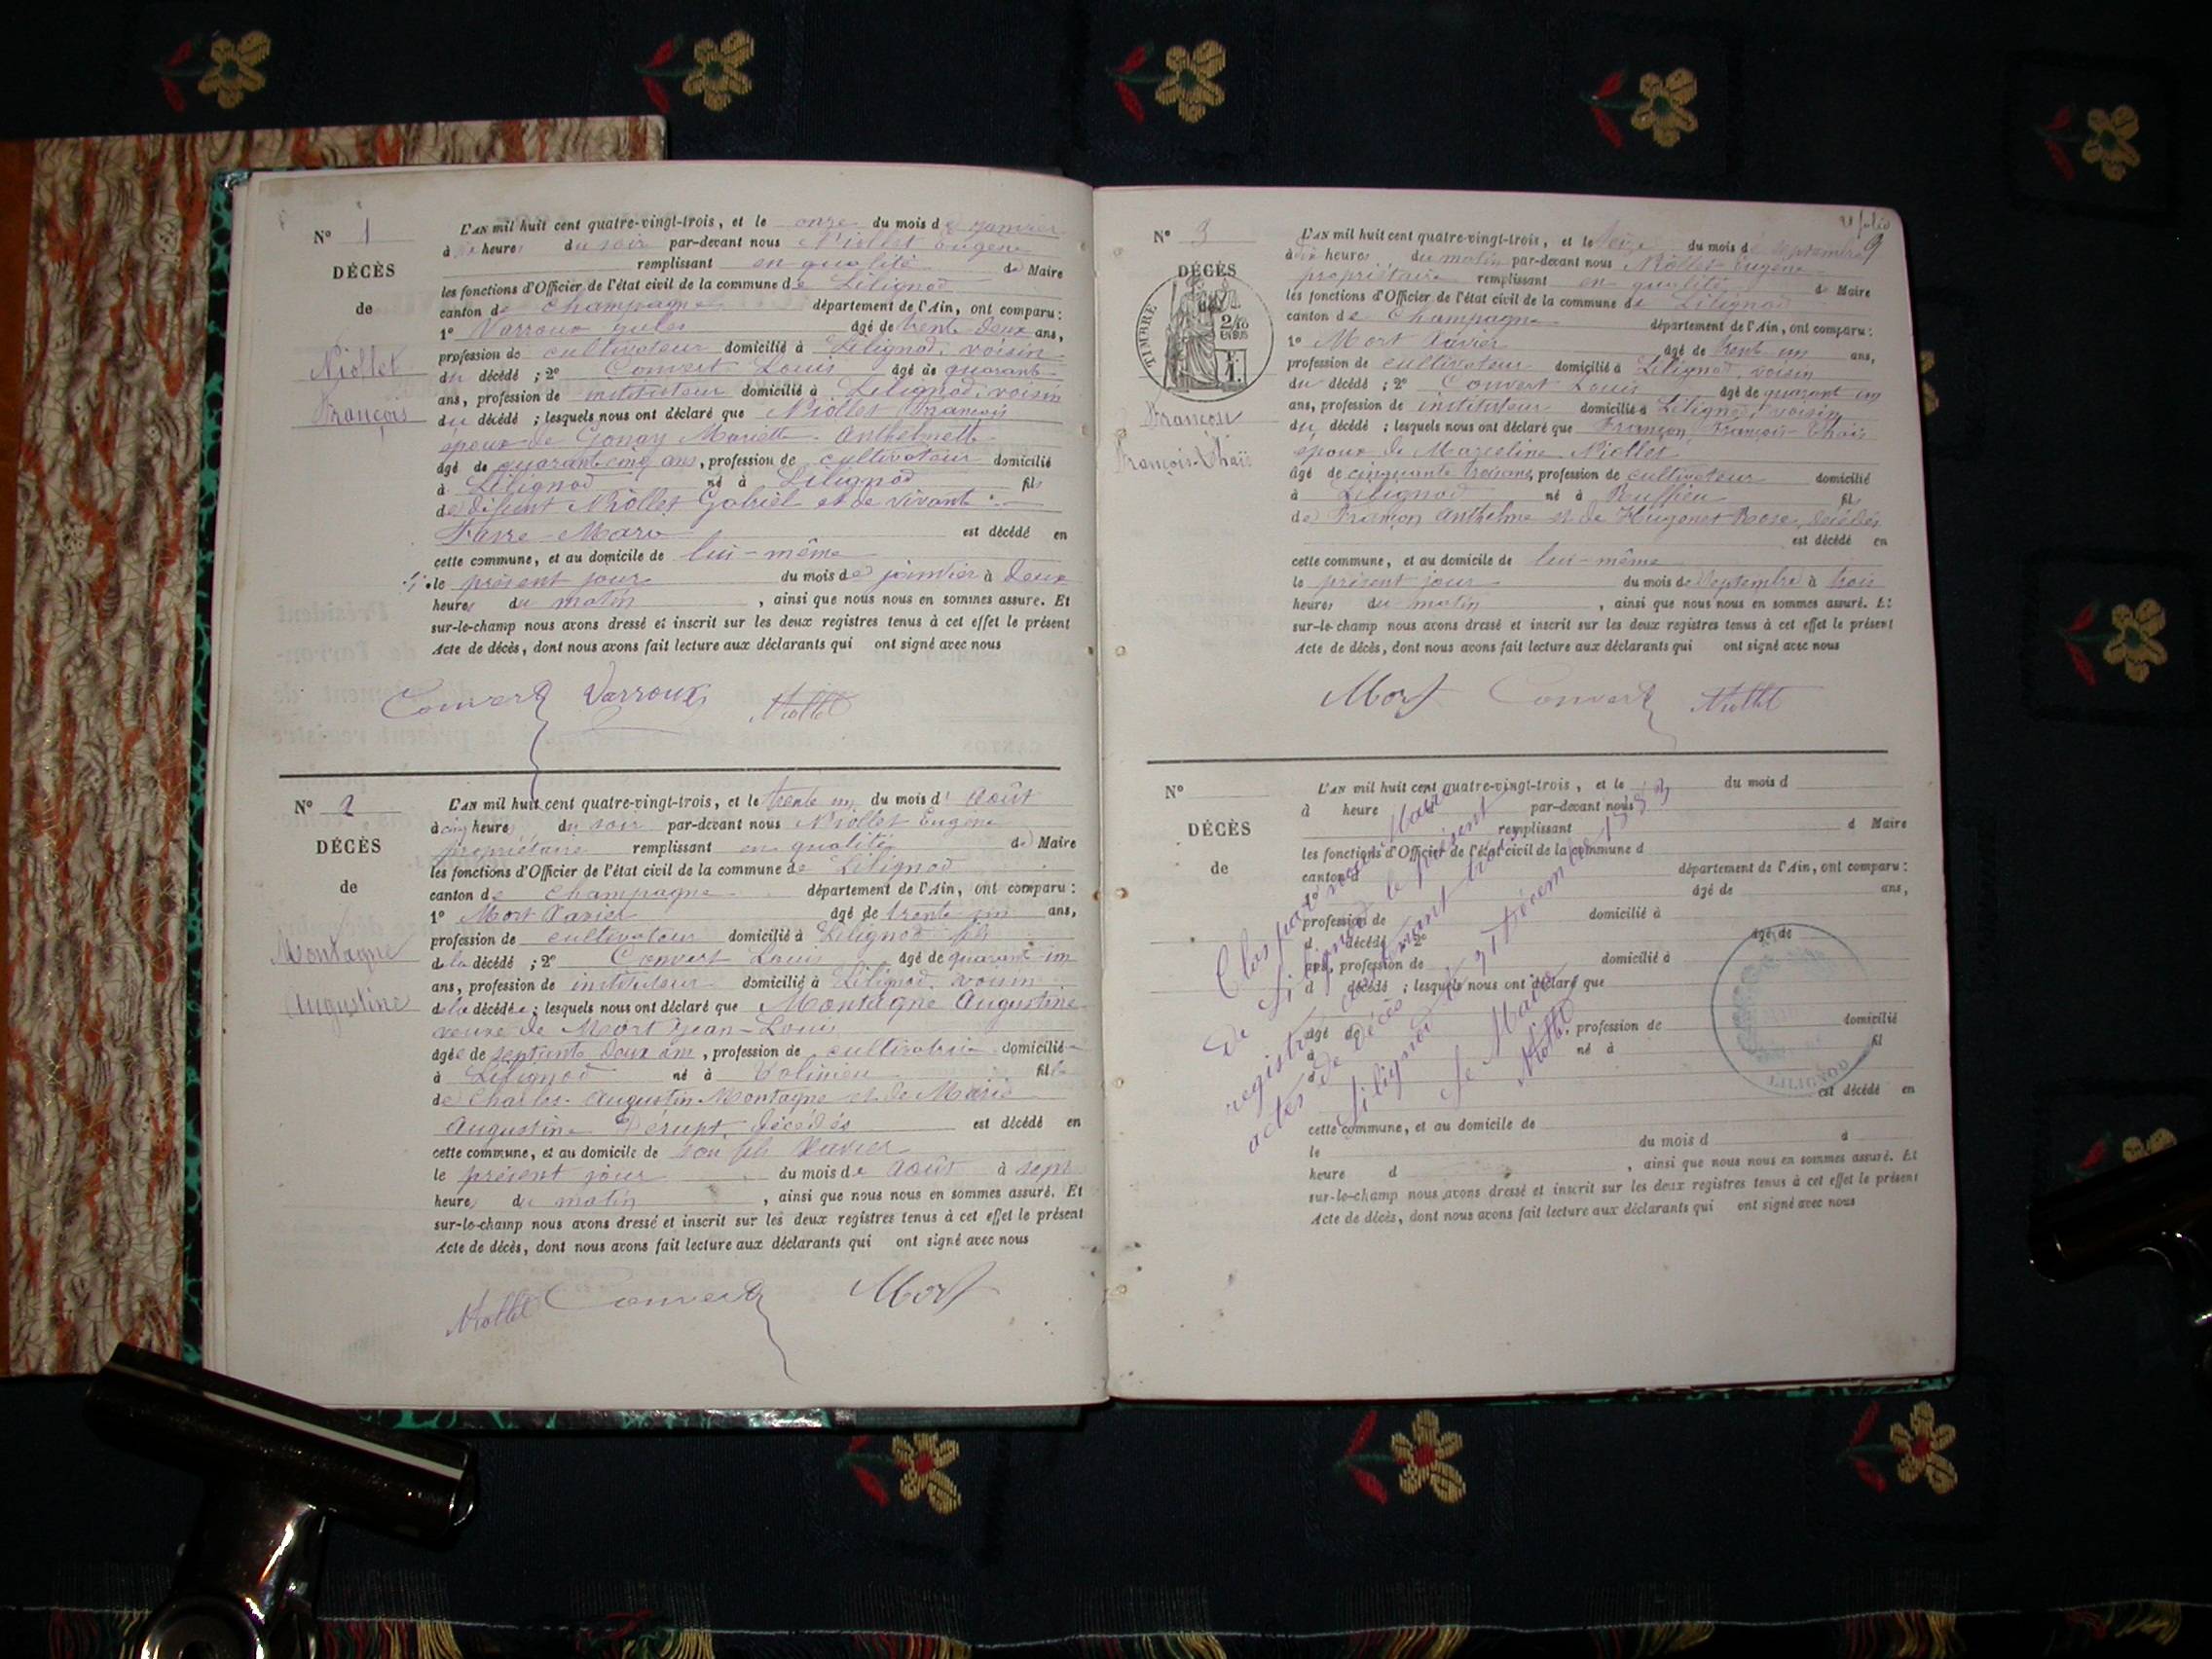 N° 1
DÉCÈS
de
Niollet
François
L'AN mil huit cent quatre-vingt-trois, et le onze du mois de janvier
à heures du soir par-devant nous Niollet Eugène
remplissant en qualité de Maire
les fonctions d'Officier de l'état civil de la commune de Lilignod
canton de Champagne département de l'Ain, ont comparu :
1° Varroux Jules âgé de trente deux ans,
profession de cultivateur domicilié à Lilignod, voisin
du décédé ; 2° Convert Louis âgé de quarante
ans, profession de instituteur domicilié à Lilignod, voisin
du décédé ; lesquels nous ont déclaré que Niollet François
époux de Gonay Mariette Anthelmette
âgé de quarante cinq ans, profession de cultivateur domicilié
à Lilignod né à Lilignod fils
de défunt Niollet Gabriel et de vivante
Favre Marie est décédé en
cette commune, et au domicile de lui-même
le présent jour du mois de janvier à deux
heures du matin , ainsi que nous nous en sommes assuré. Et
sur-le-champ nous avons dressé et inscrit sur les deux registres tenus à cet effet le présent
Acte de décès, dont nous avons fait lecture aux déclarants qui ont signé avec nous
Convert Varroux Niollet
N° 2
DÉCÈS
de
Montagne
Augustine
L'AN mil huit cent quatre-vingt-trois, et le trente un du mois d' Août
à cinq heures du soir par-devant nous Niollet Eugène
propriétaire remplissant en qualité de Maire
les fonctions d'Officier de l'état civil de la commune de Lilignod
canton de Champagne département de l'Ain, ont comparu :
1° Mort Xavier âgé de trente un ans,
profession de cultivateur domicilié à Lilignod fils
de la décédé ; 2° Convert Louis âgé de quarante un
ans, profession de instituteur domicilié à Lilignod, voisin
de la décédée ; lesquels nous ont déclaré que Montagne Augustine
veuve de Mort Jean-Louis
âgée de septante deux ans, profession de cultivatrice domiciliée
à Lilignod né à fille
de Charles-Augustin Montagne et de Marie
Augustine décédés est décédé en
cette commune, et au domicile de son fils Xavier
le présent jour du mois de Août à sept
heures du matin , ainsi que nous nous en sommes assuré. Et
sur-le-champ nous avons dressé et inscrit sur les deux registres tenus à cet effet le présent
Acte de décès, dont nous avons fait lecture aux déclarants qui ont signé avec nous
Niollet Convert Mort
folio
9
N° 3
DÉCÈS
de
TIMBRE
Françon
François-Thaïs
L'AN mil huit cent quatre-vingt-trois, et le seize du mois de septembre
à dix heures du matin par-devant nous Niollet Eugène
propriétaire remplissant en qualité de Maire
les fonctions d'Officier de l'état civil de la commune de Lilignod
canton de Champagne département de l'Ain, ont comparu :
1° Mort Xavier âgé de trente un ans,
profession de cultivateur domicilié à Lilignod, voisin
du décédé ; 2° Convert Louis âgé de quarante un
ans, profession de instituteur domicilié à Lilignod, voisin
du décédé ; lesquels nous ont déclaré que Françon François-Thaïs
époux de Marceline Niollet
âgé de cinquante trois ans, profession de cultivateur domicilié
à Lilignod né à Ruffieu fils
de Françon Anthelme et de Hugonet Rose, décédés
est décédé en
cette commune, et au domicile de lui-même
le présent jour du mois de septembre à trois
heures du matin , ainsi que nous nous en sommes assuré. Et
sur-le-champ nous avons dressé et inscrit sur les deux registres tenus à cet effet le présent
Acte de décès, dont nous avons fait lecture aux déclarants qui ont signé avec nous
Mort Convert Niollet
N°
DÉCÈS
de
L'AN mil huit cent quatre-vingt-trois, et le du mois d
à heure par-devant nous
remplissant d Maire
les fonctions d'Officier de l'état civil de la commune d
canton d département de l'Ain, ont comparu :
1° âgé de ans,
profession de domicilié à
d décédé 2° âgé de
ans, profession de domicilié à
d décédé ; lesquels nous ont déclaré que
âgé de profession de domicilié
à né à fil
d
est décédé en
cette commune, et au domicile de
le du mois d à
heure d , ainsi que nous nous en sommes assuré. Et
sur-le-champ nous avons dressé et inscrit sur les deux registres tenus à cet effet le présent
Acte de décès, dont nous avons fait lecture aux déclarants qui ont signé avec nous
Clos par nous Maire
de Lilignod le présent
registre contenant trois
actes de décès le 31 Décembre 1883
Lilignod
Le Maire
Niollet
LILIGNOD